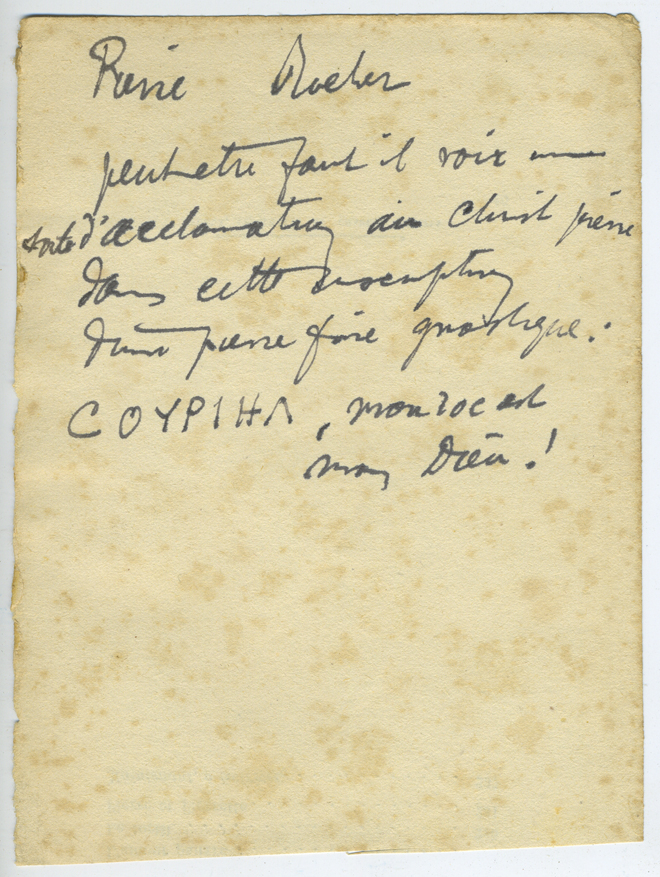 Pierre Rocher
peut etre faut il voir une
sorte d'acclamation au Christ pierre
dans cette inscription
d'une pierre fine gnostique :
СОУРІНЛ, mon roc est
mon Dieu !